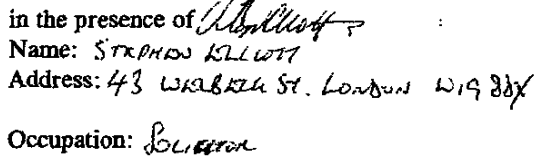 in the presence of
Name: STEPHEN ELLIOTT
Address: 43 WELBECK St. LONDON W1G 8DX
Occupation: SOLICITOR